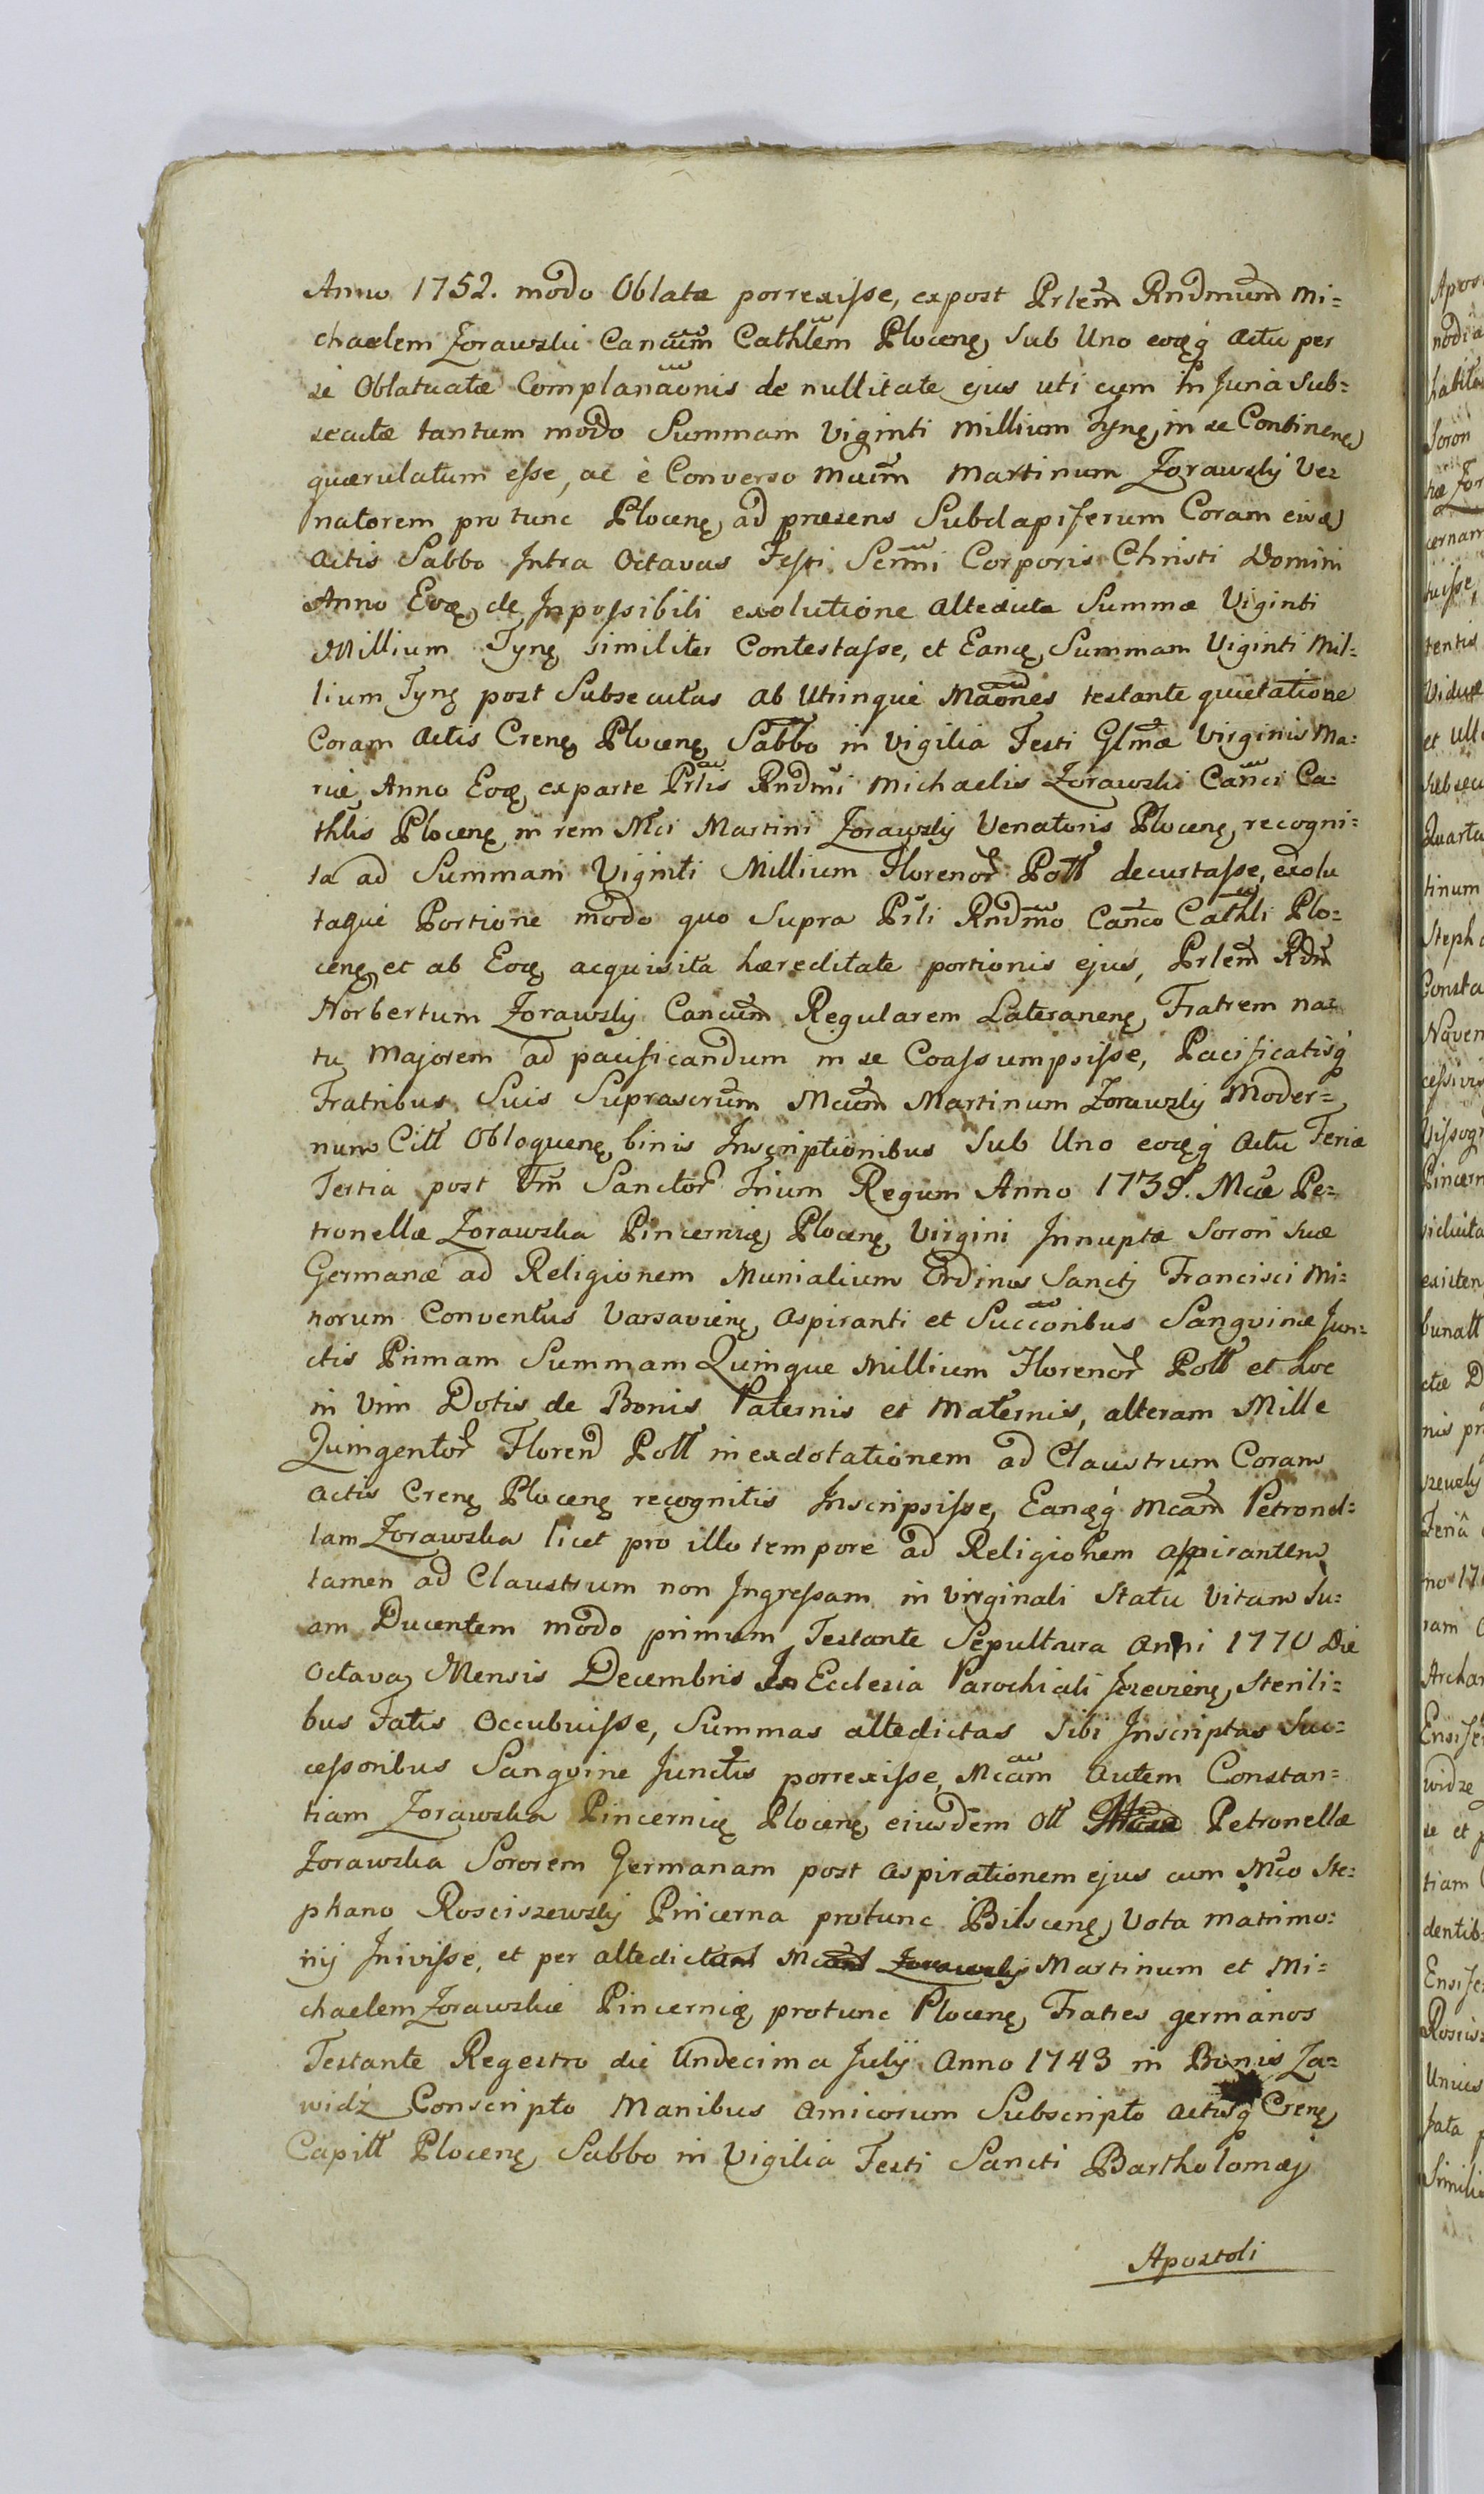 Anno 1752. modo Oblatæ porrexisse, expost Prlem Rndmum Mi=
chaelem Zorawski Cancum Cathlem Plocenę, sub Uno eoqęq́ actu per
se Oblatuatæ Complanaonis de nullitate ejus uti cum in Juria sub=
secutæ tantum modo Summam Viginti Millium Tynę, in se Continenę
quærulatum esse, ac è Converso Mucim Martinum Zorawskÿ Ve=
natorem pro tunc Plocenę, ad præsens Subdapiferum Coram eisdę
Actis Sabbo Intra Octavas Festi Sermi Corporis Christi Domini
Anno Eoqę, de Inpossibili exolutione altedictæ Summæ Viginti
Millium Tynę similiter Contestasse, et Eancę, Summam Viginti Mil=
lium Tynę post Subsecutas ab Utrinque Maones testante quietatione
Coram Actis Crenę Plocenę, Sabbo in Vigilia Festi Glmæ Virginis Ma=
riæ Anno Eoqę, ex parte Prlis Rndmi Michaelis Zorawski Canci Ca=
thlis Plocenę, in rem Mci Martini Zorawskÿ Venatoris Plocenę, recogni=
ta ad Summam Viginti Millium Florenor Poll decurtasse, exolu
taque Portione modo quo Supra Prli Rndmo Canco Cathli Plo=
cenę, et ab Eoqę, acquisita hæreditate portionis ejus, Prlem Rdm
Norbertum Zorawskÿ Cancum Regularem Lateranenę, Fratrem na=
tu Majorem ad pacificandum in se Coassumpsisse, Pacificatisq́
Fratribus Suis Suprascrum Mcum Martinum Zorawskÿ Moder=
num Citt Obloquenę, binis Inscriptionibus sub Uno eoqęq́ actu Feria
Tertia post Fm Sanctor Trium Regum Anno 1739. Mcæ Pe=
tronellæ Zorawska Pincernicę, Plocenę, Virgini Innuptæ Sorori suæ
Germanæ ad Religionem Munialium Ordinis Sancti Francisci Mi=
norum Conventus Varsavienę, aspiranti et Succoribus Sangvine Jun=
ctis Primam Summam Quinque Millium Florenor Poll et hoc
in Vim Dotis de Bonis Paternis et Maternis, alteram Mille
Quingentor Floren Poll in exdotationem ad Claustrum Coram
Actis Crenę Plocenę recognitis Inscripsisse, Eanqęq́ Mcam Petronel=
lam Zorawska licet pro illo tempore ad Religionem aspirantem
tamen ad Claustrum non Ingressam in Virginali Statu Vitam Su=
am Ducentem modo primum Testante Sepultura Anni 1770 Die
Octava Mensis Decembris In Ecclesia Parochiali Jezevienę, Sterili=
bus Fatis Occubuisse, Summas altedictas sibi Inscriptas Suc=
cessoribus Sangvine Junctis porrexisse, Mcam autem Constan=
tiam Zorawska Pincernicę Plocenę, eiusdem Oll Mcæ Petronellæ
Zorawska Sororem Germanam post aspirationem ejus cum Mco Ste=
phano Rosciszewskÿ Pincerna protunc Bilscenę, Vota matrimo=
nij Inivisse, et per altedictum Mcum Zorawskÿ Martinum et Mi=
chaelem Zorawskie Pincernicę, protunc Plocenę, Fratres germanos
Testante Regestro die Undecima Julÿ Anno 1743 in Bonis Za=
widź Conscripto Manibus Amicorum Subscripto Actisq́ Crenę,
Capitt Plocenę, Sabbo in Vigilia Festi Sancti Bartholomæj
Apostoli